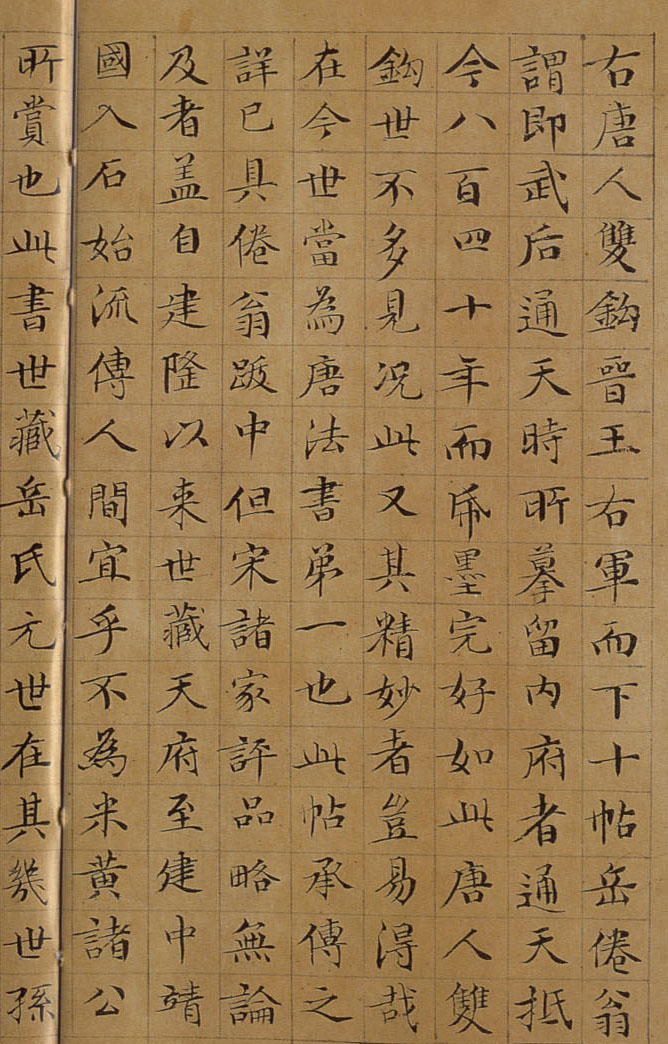 右唐人雙鈎晉王右軍而下十帖岳倦翁
謂即武后通天時所摹留内府者通天抵
今八百四十年而帋墨完好如此唐人雙
鈎世不多見况此又其精妙者豈易得哉
在今世當為唐法書弟一也此帖承傳之
詳已具倦翁跋中但宋諸家評品略無論
及者盖自建隆以来世藏天府至建中靖
國入石始流傳人間宜乎不為米黄諸公
所賞也此書世藏岳氏元世在其幾世孫